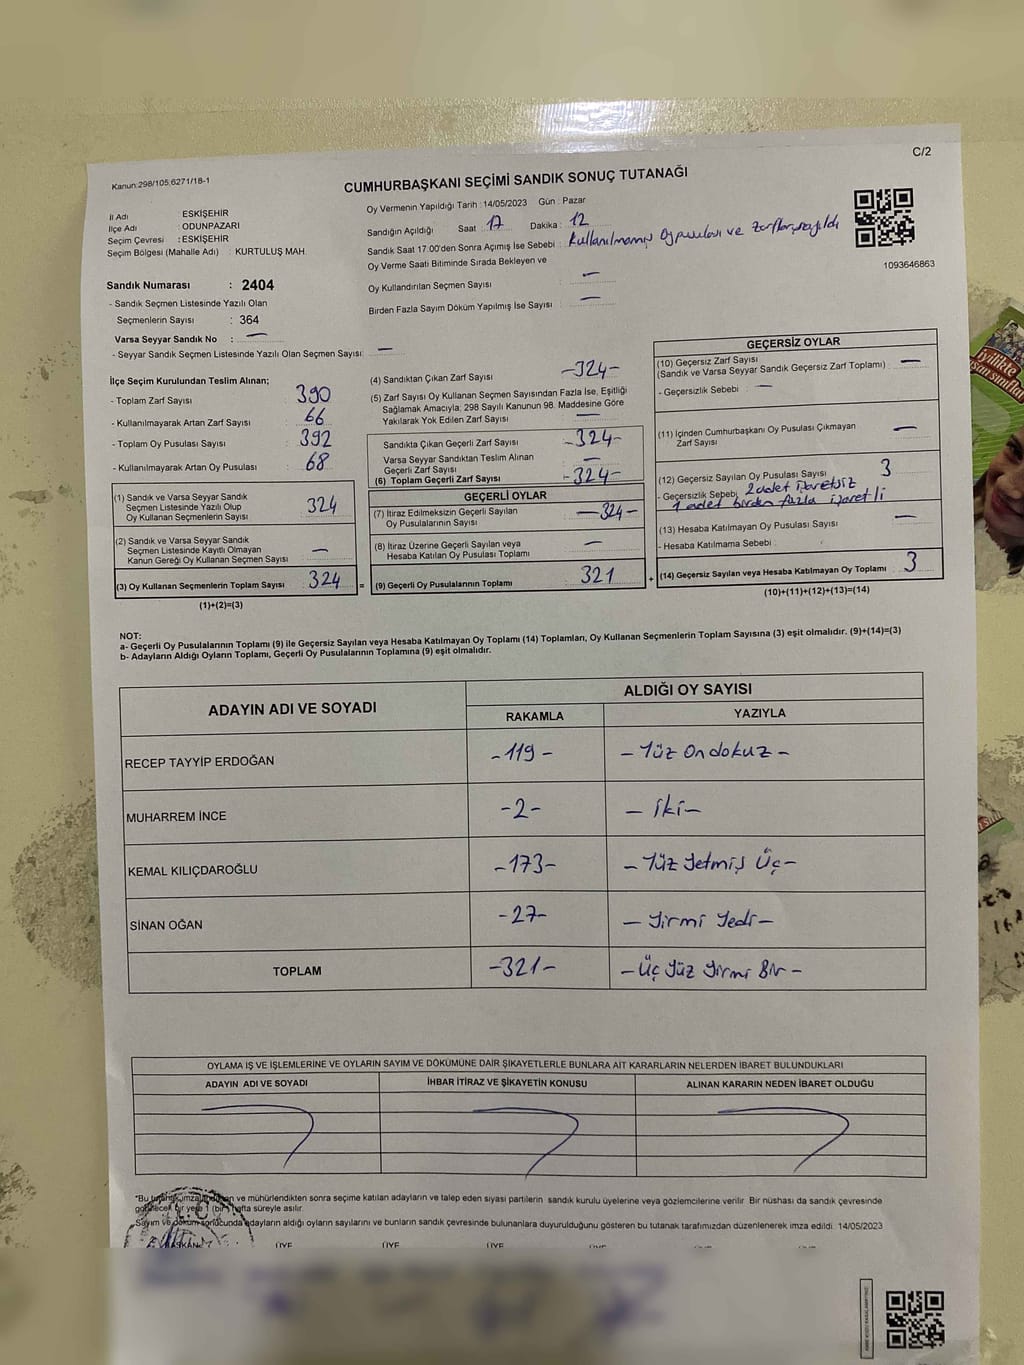 C/2
Kanun:298/105,6271/18-1
CUMHURBAŞKANI SEÇİMİ SANDIK SONUÇ TUTANAĞI
İl Adı : ESKİŞEHİR
İlçe Adı : ODUNPAZARI
Seçim Çevresi : ESKİŞEHİR
Seçim Bölgesi (Mahalle Adı) : KURTULUŞ MAH
Oy Vermenin Yapıldığı Tarih : 14/05/2023 Gün : Pazar
Sandığın Açıldığı Saat : 17 Dakika : 12
Sandık Saat 17.00'den Sonra Açımış İse Sebebi : Kullanılmamış Oy pusulası ve Zarflar sayıldı
Oy Verme Saati Bitiminde Sırada Bekleyen ve
Oy Kullandırılan Seçmen Sayısı : —
Birden Fazla Sayım Döküm Yapılmış İse Sayısı : —
1093646863
Sandık Numarası : 2404
- Sandık Seçmen Listesinde Yazılı Olan
Seçmenlerin Sayısı : 364
Varsa Seyyar Sandık No : —
- Seyyar Sandık Seçmen Listesinde Yazılı Olan Seçmen Sayısı : —
İlçe Seçim Kurulundan Teslim Alınan;
- Toplam Zarf Sayısı : 390
- Kullanılmayarak Artan Zarf Sayısı : 66
- Toplam Oy Pusulası Sayısı : 392
- Kullanılmayarak Artan Oy Pusulası : 68
(1) Sandık ve Varsa Seyyar Sandık
Seçmen Listesinde Yazılı Olup
Oy Kullanan Seçmenlerin Sayısı : 324
(2) Sandık ve Varsa Seyyar Sandık
Seçmen Listesinde Kayıtlı Olmayan
Kanun Gereği Oy Kullanan Seçmen Sayısı : —
(3) Oy Kullanan Seçmenlerin Toplam Sayısı : 324 =
(1)+(2)=(3)
(4) Sandıktan Çıkan Zarf Sayısı : -324-
(5) Zarf Sayısı Oy Kullanan Seçmen Sayısından Fazla İse, Eşitliği
Sağlamak Amacıyla; 298 Sayılı Kanunun 98. Maddesine Göre
Yakılarak Yok Edilen Zarf Sayısı : —
Sandıkta Çıkan Geçerli Zarf Sayısı : -324-
Varsa Seyyar Sandıktan Teslim Alınan
Geçerli Zarf Sayısı : —
(6) Toplam Geçerli Zarf Sayısı : -324-
GEÇERLİ OYLAR
(7) İtiraz Edilmeksizin Geçerli Sayılan
Oy Pusulalarının Sayısı : -324-
(8) İtiraz Üzerine Geçerli Sayılan veya
Hesaba Katılan Oy Pusulası Toplamı : —
(9) Geçerli Oy Pusulalarının Toplamı : 321 +
GEÇERSİZ OYLAR
(10) Geçersiz Zarf Sayısı
(Sandık ve Varsa Seyyar Sandık Geçersiz Zarf Toplamı) : —
- Geçersizlik Sebebi : —
(11) İçinden Cumhurbaşkanı Oy Pusulası Çıkmayan
Zarf Sayısı : —
(12) Geçersiz Sayılan Oy Pusulası Sayısı : 3
- Geçersizlik Sebebi : 2 adet işaretsiz
1 adet birden fazla işaretli
(13) Hesaba Katılmayan Oy Pusulası Sayısı : —
- Hesaba Katılmama Sebebi :
(14) Geçersiz Sayılan veya Hesaba Katılmayan Oy Toplamı : 3
(10)+(11)+(12)+(13)=(14)
NOT:
a- Geçerli Oy Pusulalarının Toplamı (9) ile Geçersiz Sayılan veya Hesaba Katılmayan Oy Toplamı (14) Toplamları, Oy Kullanan Seçmenlerin Toplam Sayısına (3) eşit olmalıdır. (9)+(14)=(3)
b- Adayların Aldığı Oyların Toplamı, Geçerli Oy Pusulalarının Toplamına (9) eşit olmalıdır.
ADAYIN ADI VE SOYADI ALDIĞI OY SAYISI
RAKAMLA YAZIYLA
RECEP TAYYİP ERDOĞAN -119- - Yüz Ondokuz -
MUHARREM İNCE -2- - İki -
KEMAL KILIÇDAROĞLU -173- - Yüz Yetmiş Üç -
SİNAN OĞAN -27- - Yirmi Yedi -
TOPLAM -321- - Üç Yüz Yirmi Bir -
OYLAMA İŞ VE İŞLEMLERİNE VE OYLARIN SAYIM VE DÖKÜMÜNE DAİR ŞİKAYETLERLE BUNLARA AİT KARARLARIN NELERDEN İBARET BULUNDUKLARI
ADAYIN ADI VE SOYADI İHBAR İTİRAZ VE ŞİKAYETİN KONUSU ALINAN KARARIN NEDEN İBARET OLDUĞU
"Bu ve mühürlendikten sonra seçime katılan adayların ve talep eden siyasi partilerin sandık kurulu üyelerine veya gözlemcilerine verilir Bir nüshası da sandık çevresinde
bir yere 1 (bir) hafta süreyle asılır.
Sayım ve döküm sonucunda adayların aldığı oyların sayılarını ve bunların sandık çevresinde bulunanlara duyurulduğunu gösteren bu tutanak tarafımızdan düzenlenerek imza edildi. 14/05/2023
BAŞKAN ÜYE ÜYE ÜYE ÜYE ÜYE ÜYE